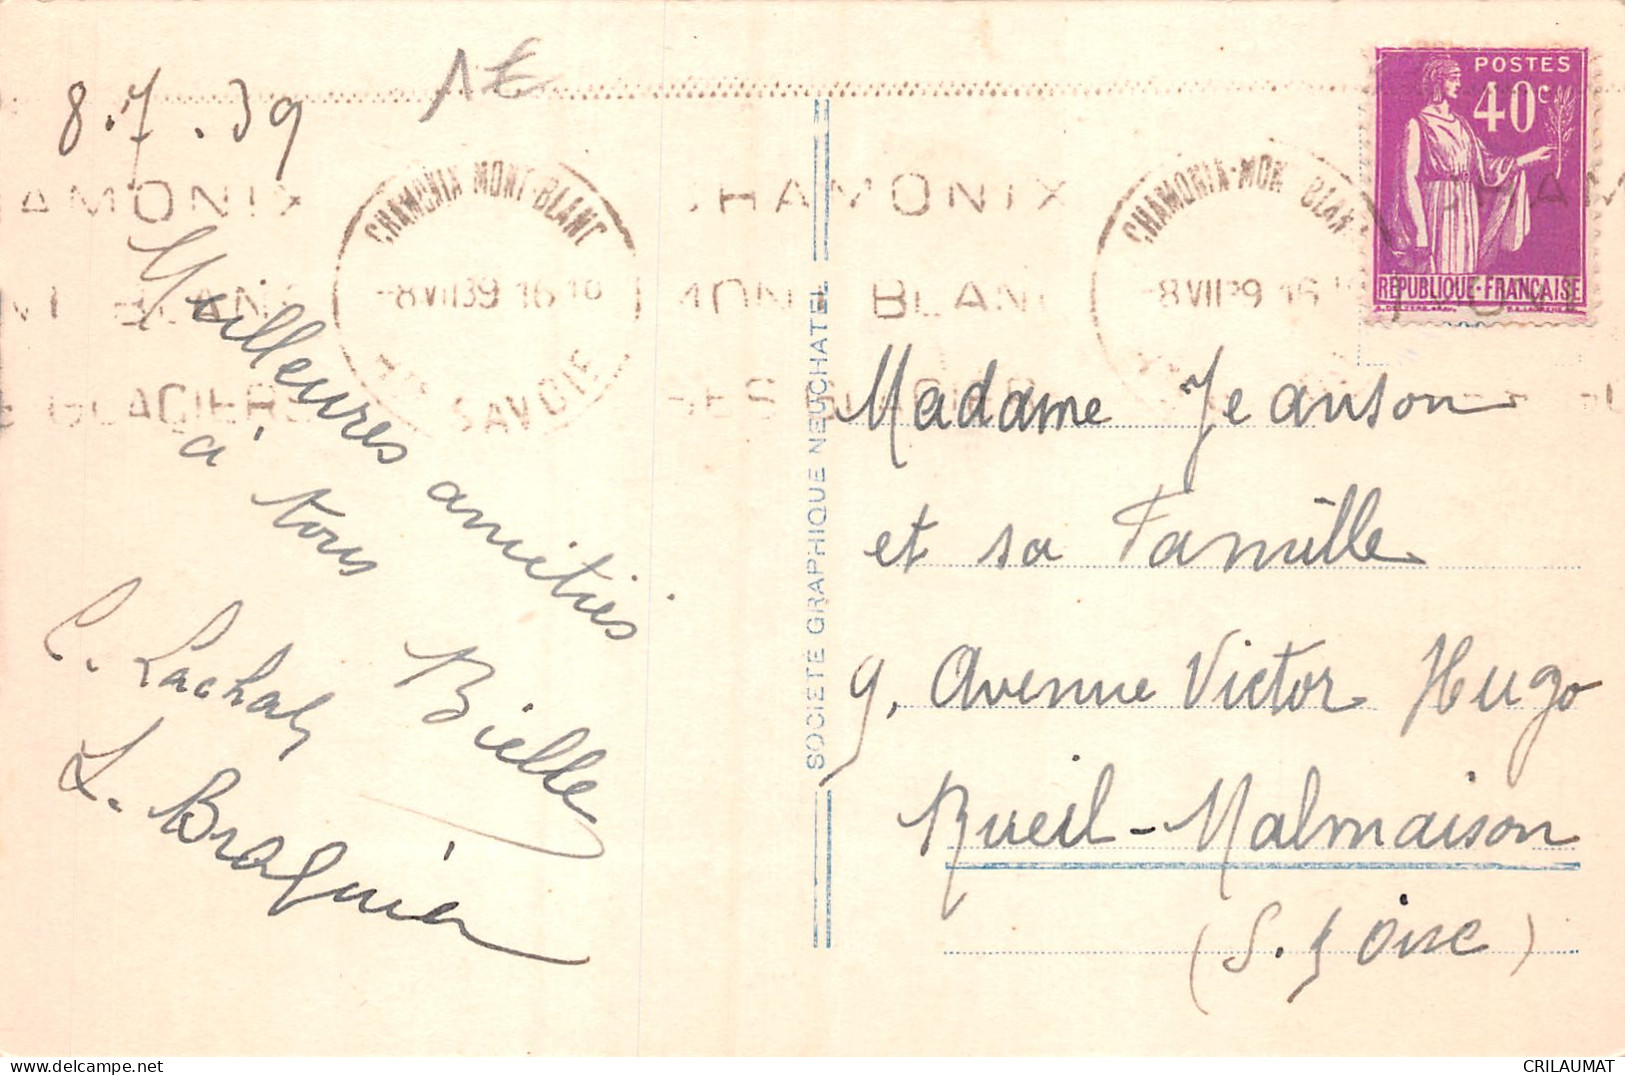 8.7.39
1€
CHAMONIX MONT-BLANC
-8 VII 39 16 10
Hte SAVOIE
AMONIX
BLANC
GLACIERS
CHAMONIX
MONT BLANC
SES GLACIERS
CHAMONIX-MON BLAN
-8 VII 39 16
CHAM
POSTES
40c
RÉPUBLIQUE-FRANÇAISE
Meilleures amitiés
à tous
Bielle
L. Braguier
SOCIETE GRAPHIQUE NEUCHATEL
Madame Jeanson
et sa Famille
9, Avenue Victor Hugo
Rueil-Malmaison
(S. & Oise)
CRILAUMAT